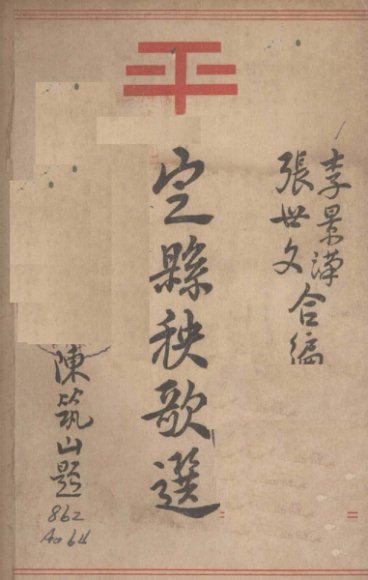 李景漢
張世文
合編
定縣秧歌選
陳筑山題
862
Ao64